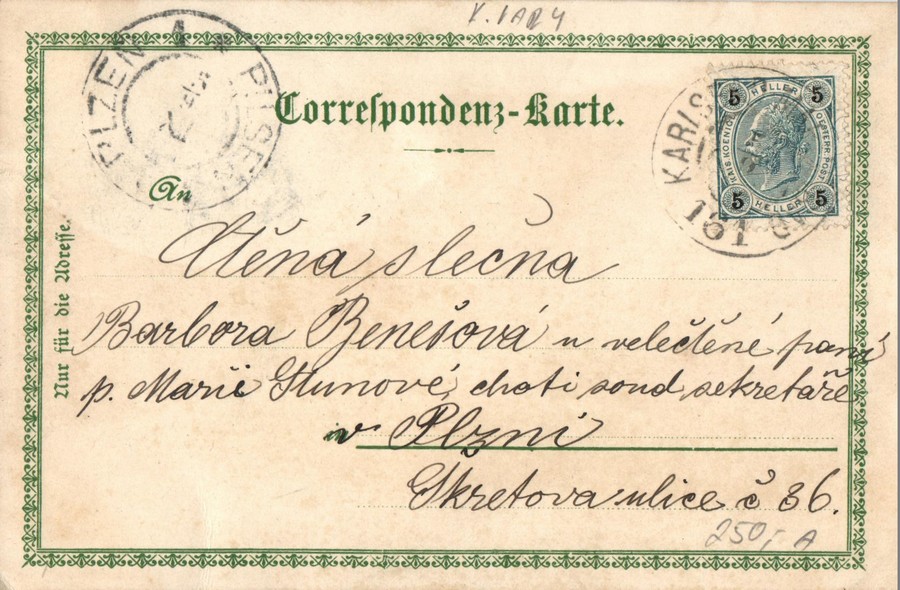 K. VARY
PLZEŇ 1 * PILSEN
Correspondenz-Karte.
KARLSB
161
5 HELLER 5
KAIS. KOENIGL. OESTERR. POST
5 HELLER 5
An
Nur für die Adresse.
Ctěná slečna
Barbora Benešová u velectěné paní
p. Marii Hunové, choti soud sekretáře
v Plzni
Skretova ulice č 36.
250,- A